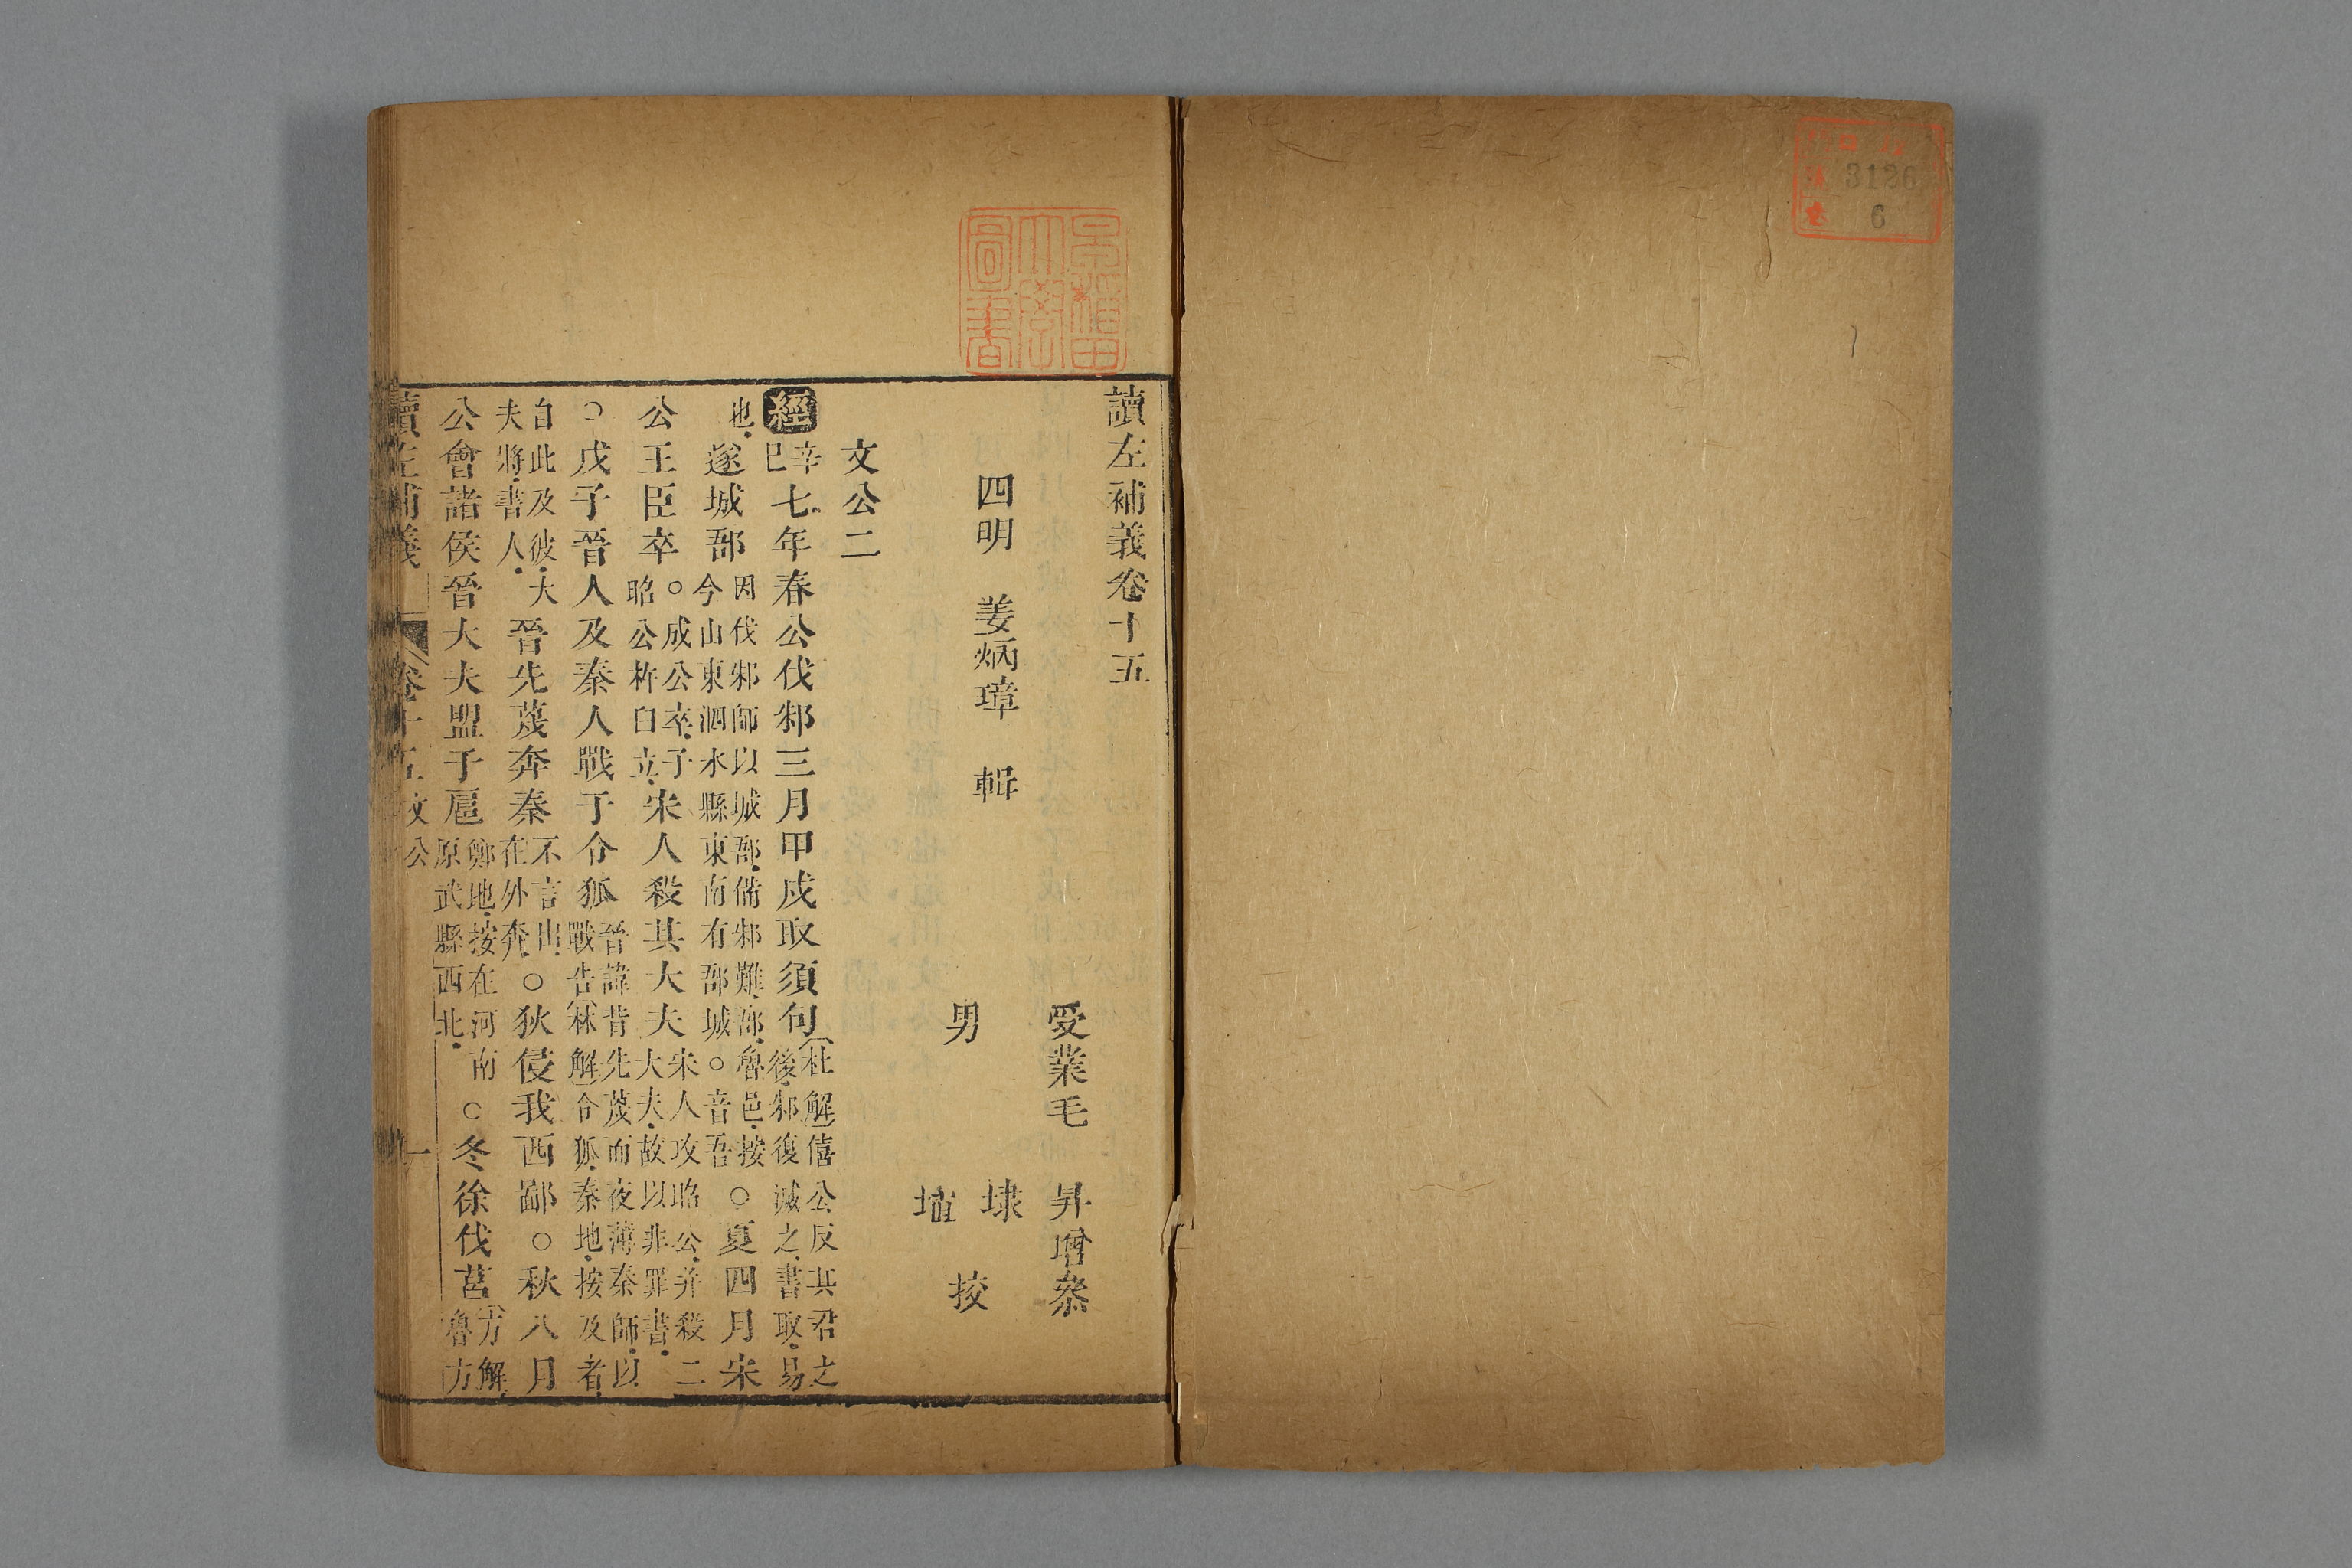 3126
6
讀左補義卷十五
受業毛昇增叅
四明 姜炳璋 輯
男 埭
𡍼 挍
文公二
經辛巳七年春公伐邾三月甲戌取須句杜解僖公反其君之後邾復滅之書取易
也遂城郚因伐邾師以城郚備邾難郚魯邑按今山東泗水縣東南有郚城○音吾○夏四月宋
公王臣卒○成公卒子昭公杵臼立宋人殺其大夫宋人攻昭公并殺二大夫故以非罪書
○戊子晉人及秦人戰于令狐晉諱背先蔑而夜薄秦師以戰告林解令狐秦地按及者
自此及彼大夫將書人晉先蔑奔秦不言出在外奔○狄侵我西鄙○秋八月
公會諸侯晉大夫盟于扈鄭地按在河南原武縣西北○冬徐伐莒方解魯方
讀左補義 卷十五 文公 一
早稲田大學圖書